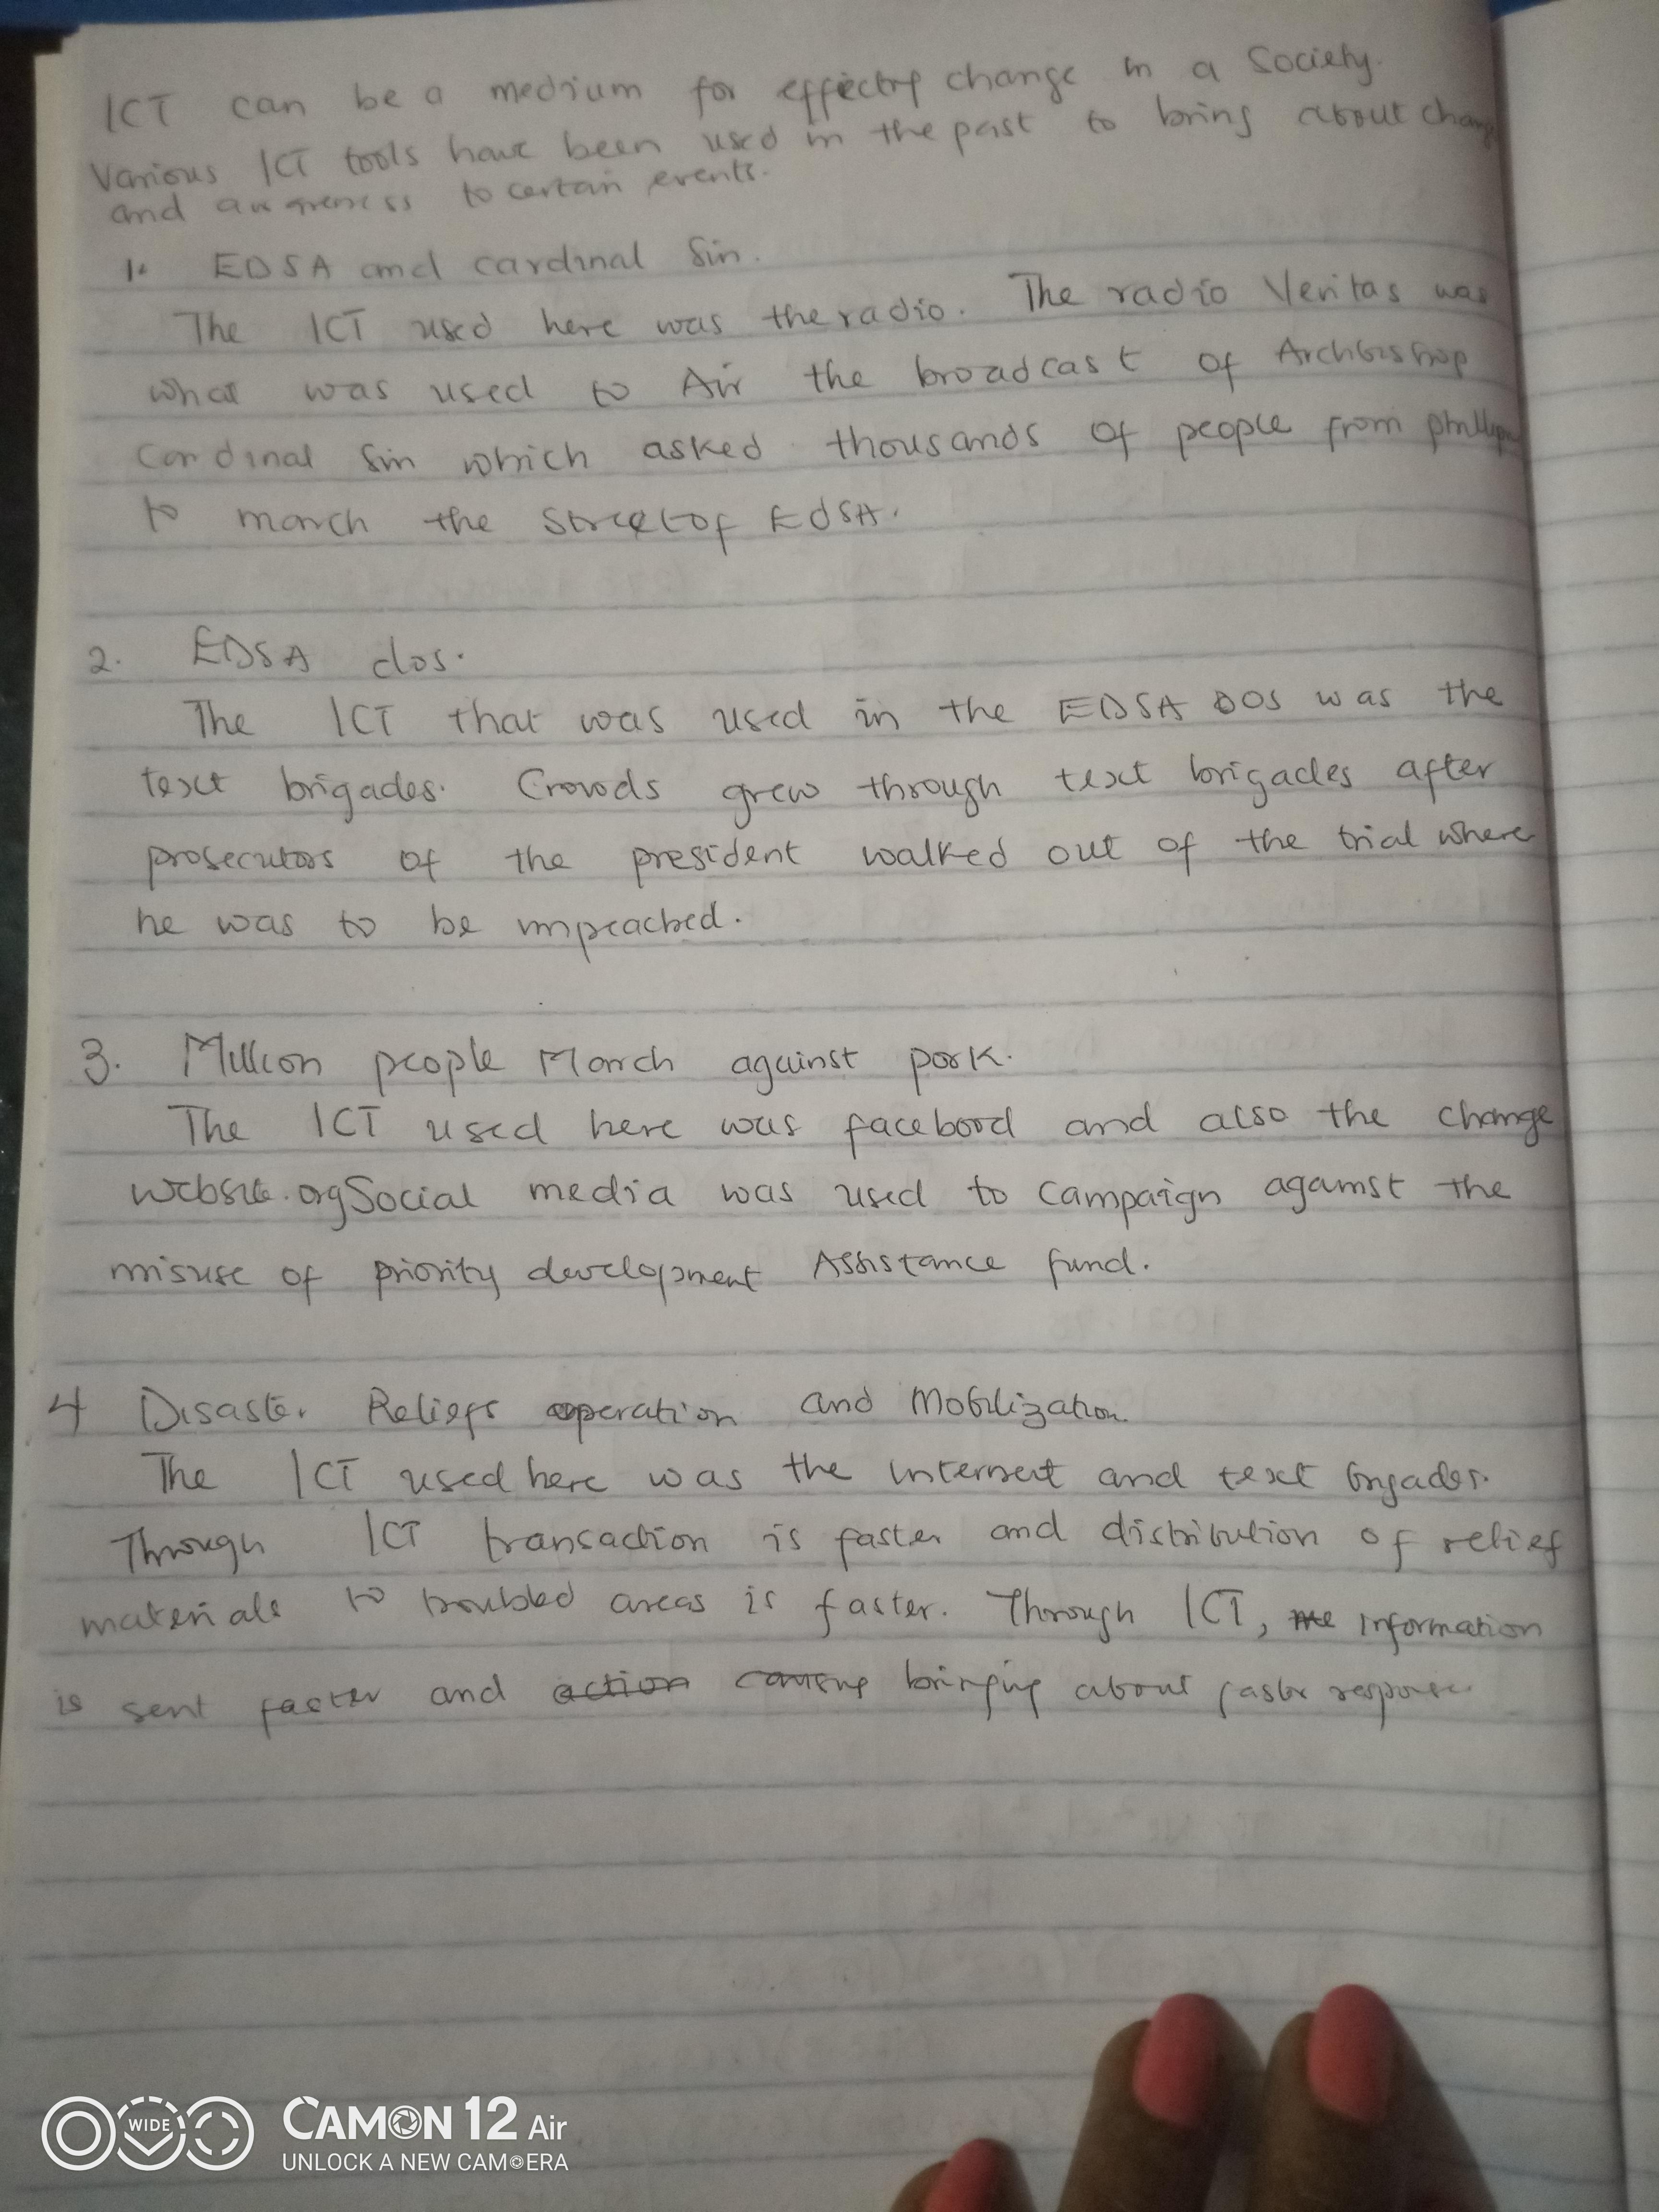 ICT can be a medium for effecting change in a Society.
Various ICT tools have been used in the past to bring about change
and awareness to certain events.
1. EDSA and cardinal Sin.
The ICT used here was the radio. The radio Veritas was
what was used to Air the broadcast of Archbishop
Cardinal Sin which asked thousands of people from
to march the Street of EDSA.
2. EDSA dos.
The ICT that was used in the EDSA DOS was the
text brigades. Crowds grew through text brigades after
prosecutors of the president walked out of the trial where
he was to be impeached.
3. Million people March against pork.
The ICT used here was facebood and also the change
website.org Social media was used to campaign against the
misuse of priority development Assistance fund.
4 Disaster Reliefs operation and Mobilization.
The ICT used here was the internert and text brigades.
Through ICT transaction is faster and distribution of relief
materials to troubled areas is faster. Through ICT, me information
is sent faster and action causing bringing about faster response.
WIDE
CAMON 12 Air
UNLOCK A NEW CAMERA